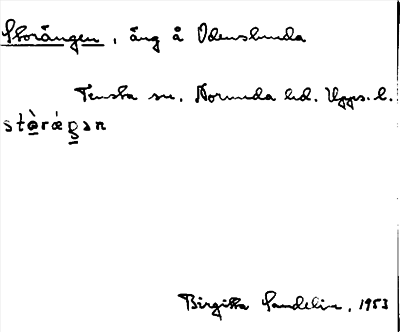 Storängen, äng å Odenslunda
Tensta sn. Norunda hd. Upps. l.
stò̱rǽŋ̱ən
Birgitta Sundelin, 1953